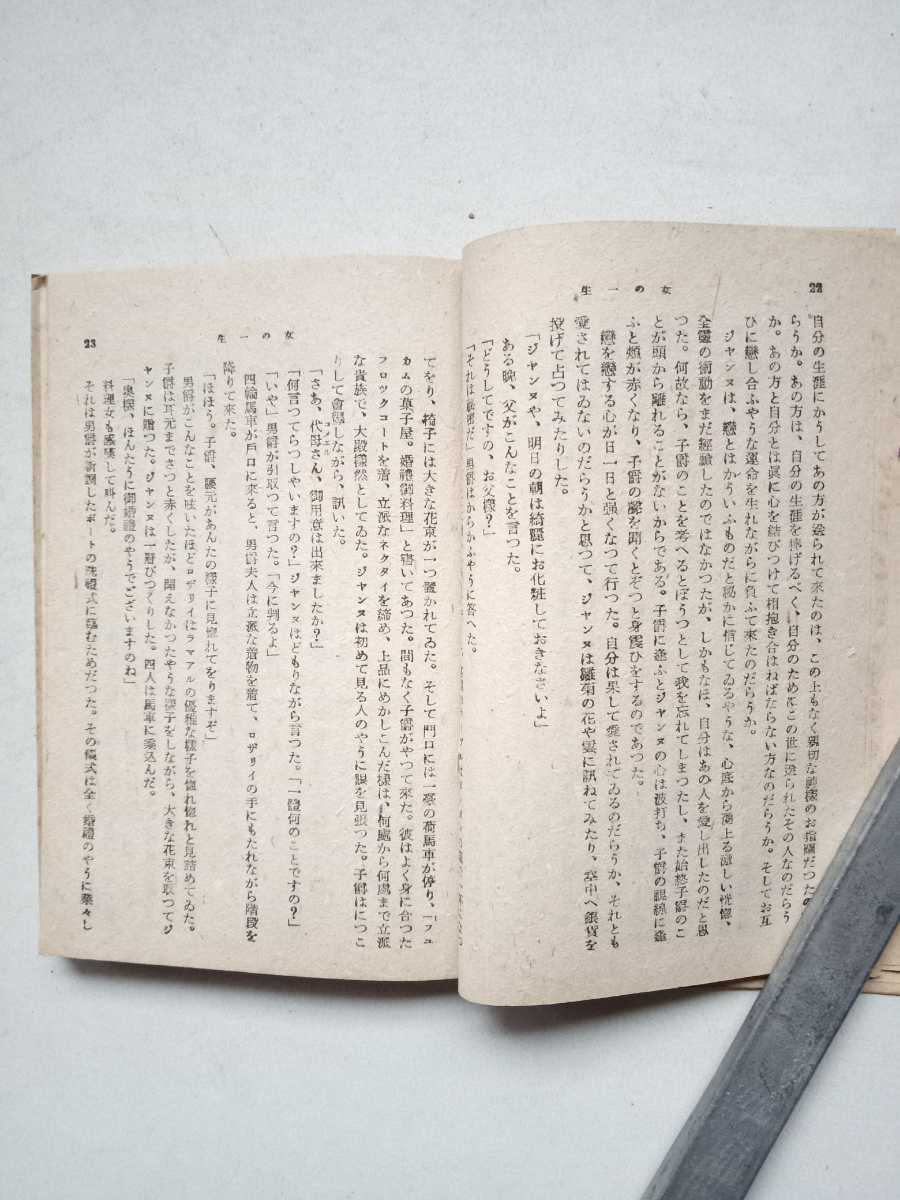 22
女の一生
自分の生涯にかうしてあの方が送られて来たのは、この上もなく親切な神様のお指圖だつたの
らうか。あの方は、自分の生涯を捧げるべく、自分のためにこの世に送られたその人なのだらう
か。あの方と自分とは眞に心を結びつけて相抱き合はねばならない方なのだらうか。そしてお互
ひに戀し合ふやうな運命を生れながらに負ふて来たのだらうか。
ジャンヌは、戀とはかういふものだと秘かに信じてゐるやうな、心底から湧上る涼しい恍惚、
全靈の衝動をまだ經驗したのではなかつたが、しかもなほ、自分はあの人を愛し出したのだと思
つた。何故なら、子爵のことを考へるとぼうつとして我を忘れてしまつたし、また始終子爵のこ
とが頭から離れることがないからである。子爵に逢ふとジャンヌの心は波打ち、子爵の視線に逢
ふと頬が赤くなり、子爵の聲を聞くとぞつと身震ひをするのであつた。
戀を戀する心が一日一日と强くなつて行つた。自分は果して愛されてゐるのだらうか、それとも
愛されてはゐないのだらうかと思つて、ジャンヌは雛菊の花や雲に訊ねてみたり、空中へ銀貨を
投げて占つてみたりした。
ある晩、父がこんなことを言つた。
「ジャンヌや、明日の朝は綺麗にお化粧しておきなさいよ」
「どうしてですの、お父樣?」
「それは秘密だ」男爵はからかふやうに答へた。
女の一生
23
てをり、椅子には大きな花束が一つ置かれてゐた。そして門口には一臺の荷馬車が停り、「フユ
カムの菓子屋。婚禮御料理」と書いてあつた。間もなく子爵がやつて来た。彼はよく身に合つた
フロツクコートを着、立派なネクタイを締め、上品にめかしこんだ樣は、何處から何處まで立派
な貴族で、大殿樣然としてゐた。ジャンヌは初めて見る人のやうに眼を見張つた。子爵はにつこ
りして會釋しながら、訊いた。
「さあ、代母さん、御用意は出来ましたか?」
「何言つてらつしやいますの?」ジャンヌはどもりながら言つた。「一體何のことですの?」
「いや」男爵が引取つて言つた。「今に判るよ」
四輪馬車が戶口に來ると、男爵夫人は立派な着物を着て、ロザリイの手にもたれながら階段を
降りて来た。
「ほほう。子爵、腰元があんたの樣子に見惚れてをりますぞ」
男爵がこんなことを呟いたほどロザリイはラマアルの優雅な樣子を惚れ惚れと見詰めてゐた。
子爵は耳元までさつと赤くしたが、聞えなかつたやうな樣子をしながら、大きな花束を取つてジ
ャンヌに贈つた。ジャンヌは一層びつくりした。四人は馬車に乘込んだ。
「奥樣、ほんたうに御婚禮のやうでございますのね」
料理女も感嘆して叫んだ。
それは男爵が新調したボートの洗禮式に臨むためだつた。その儀式は全く婚禮のやうに華々し